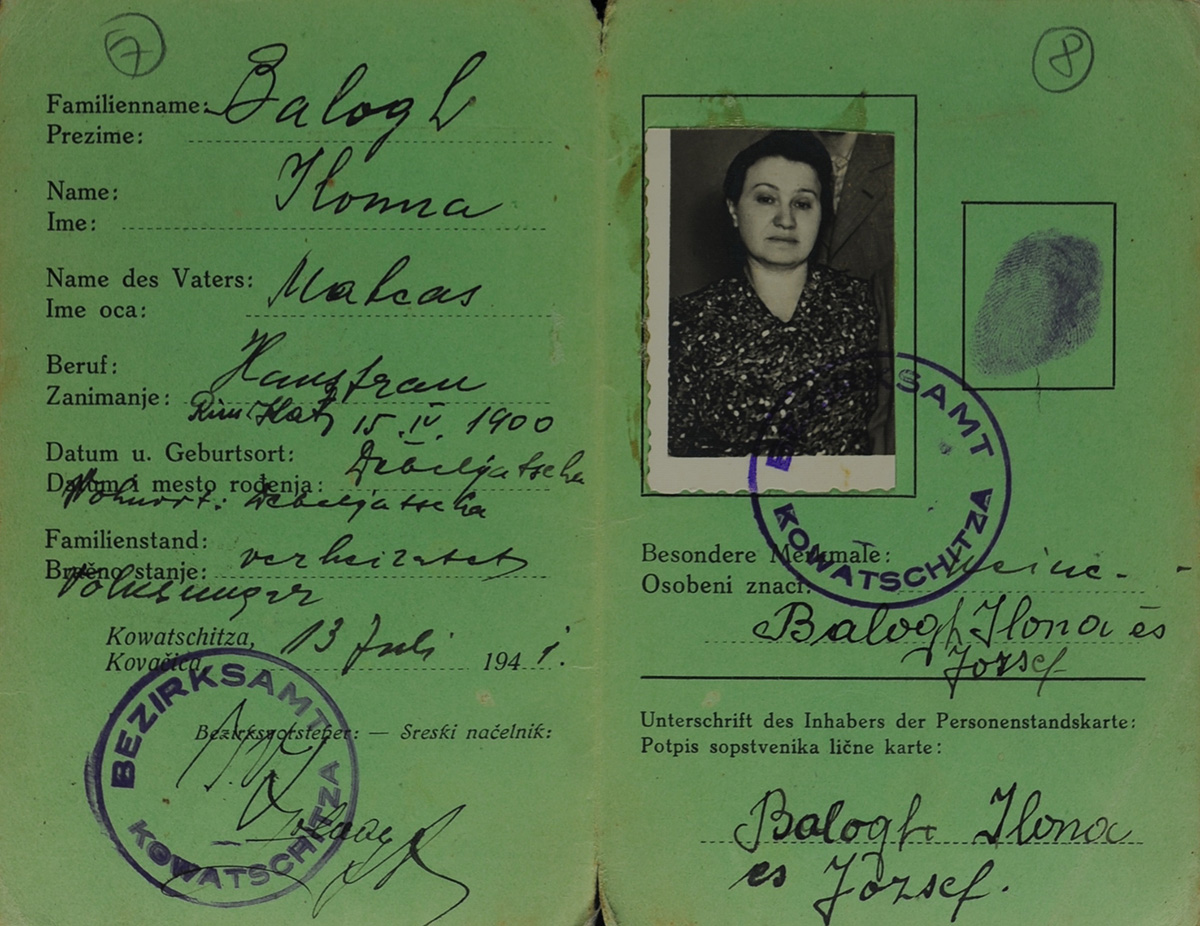 7
Familienname: Balogh
Prezime:
Name: Ilonna
Ime:
Name des Vaters: Matias
Ime oca:
Beruf: Hausfrau
Zanimanje:
Röm. Kat. 15. IV. 1900
Datum u. Geburtsort: Debeljatscha
Datum i mesto rođenja:
Wohnort: Debeljatscha
Familienstand: verheiratet
Bračno stanje:
Volksungar
Kowatschitza, 13 Juli 1941.
Kovačica
BEZIRKSAMT
KOWATSCHITZA
Bezirksvorsteher: — Sreski načelnik:
8
BEZIRKSAMT
KOWATSCHITZA
Besondere Merkmale: keine. -
Osobeni znaci:
Balogh Ilona és
József
Unterschrift des Inhabers der Personenstandskarte:
Potpis sopstvenika lične karte:
Balogh Ilona
es József.